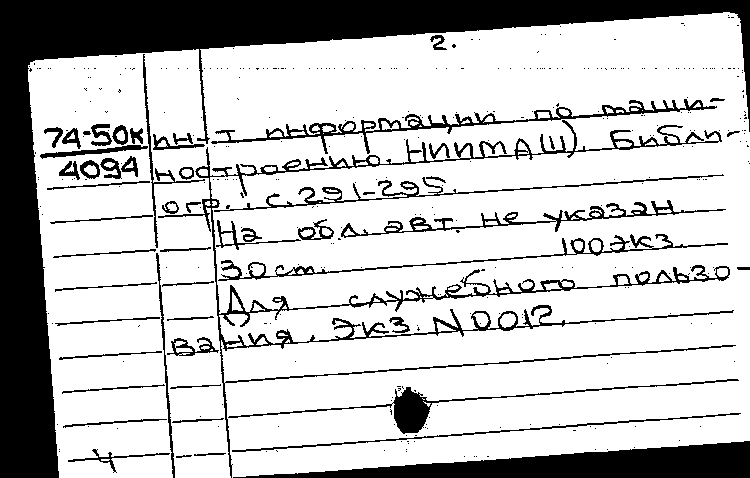 2.
74-50к ин-т информации по маши-
4094 ностроению. НИИМАШ). Библи-
огр.: с.291-295.
На обл. авт. не указан.
30 cm. 100 экз.
Для служебного пользо-
вания. Экз. N0012.
4